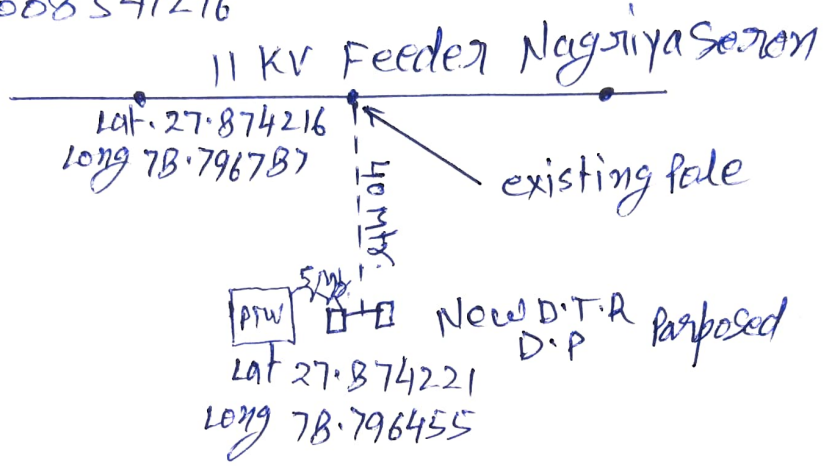 008541216
11 KV Feeder Nagriya Soron
Lat. 27.874216
Long 78.796787
existing Pole
40 Mtr.
5 Mtr.
PTW
New D.T.R Parposed
D.P
Lat 27.874221
Long 78.796455